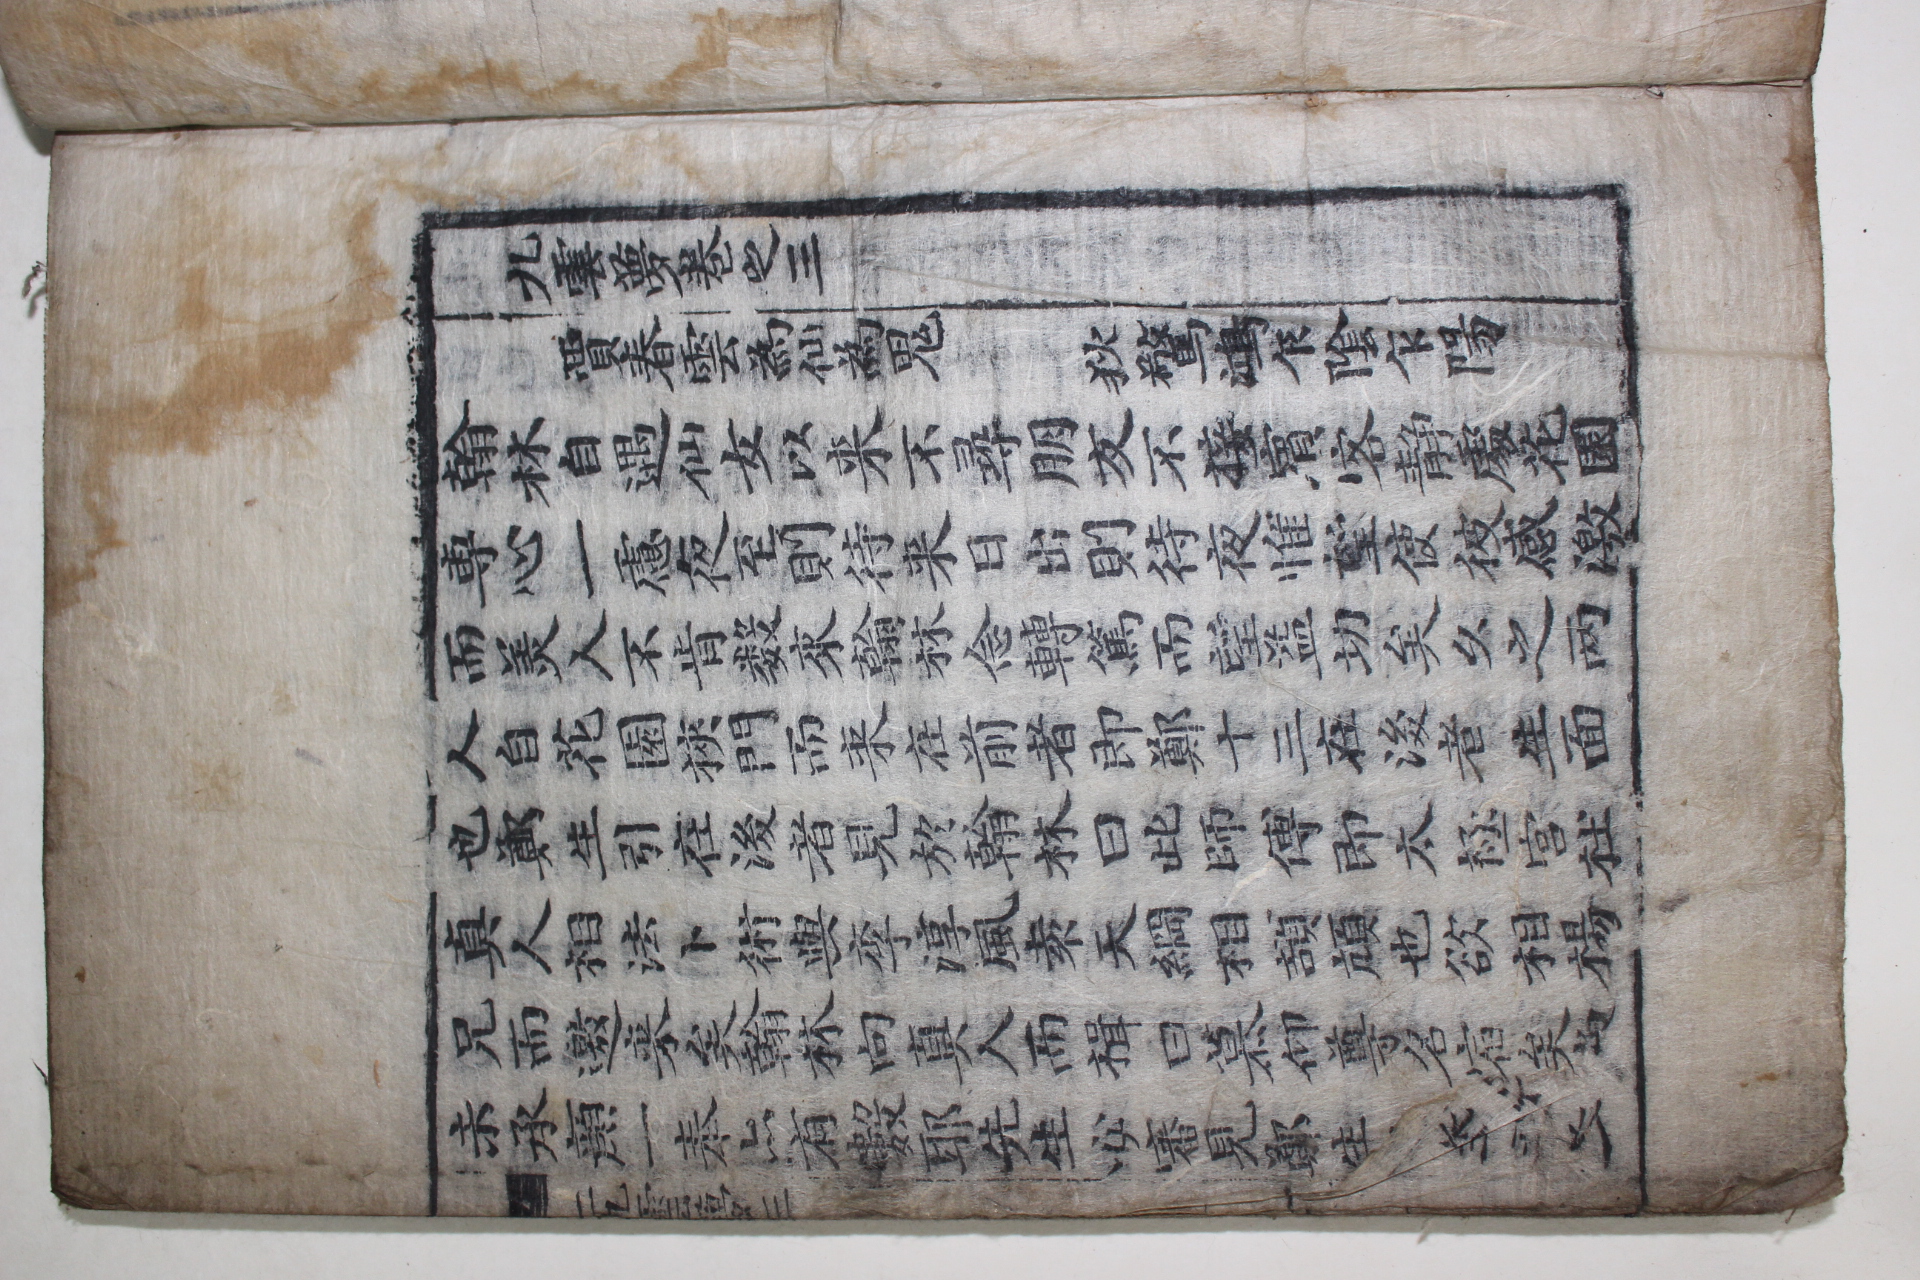 九雲夢卷之三
賈春雲為仙為鬼 狄驚鴻乍陰乍陽
翰林自遇仙女以来不尋朋友不接賓客静處花園
專心一慮夜至則待来日出則待夜惟望使彼感激
而美人不肯數來翰林念轉篤而望益切矣久之兩
人自花園挾門而来在前者即鄭十三在後者生面
也鄭生引在後者見於翰林曰此師傅即太極宮杜
真人相法卜術與李淳風袁天綱相頡頏也欲相楊
兄而邀來矣翰林向真人而揖曰慕仰尊名宿矣尚
未承顔一奉亦有數耶先生必審見鄭生
九雲夢三